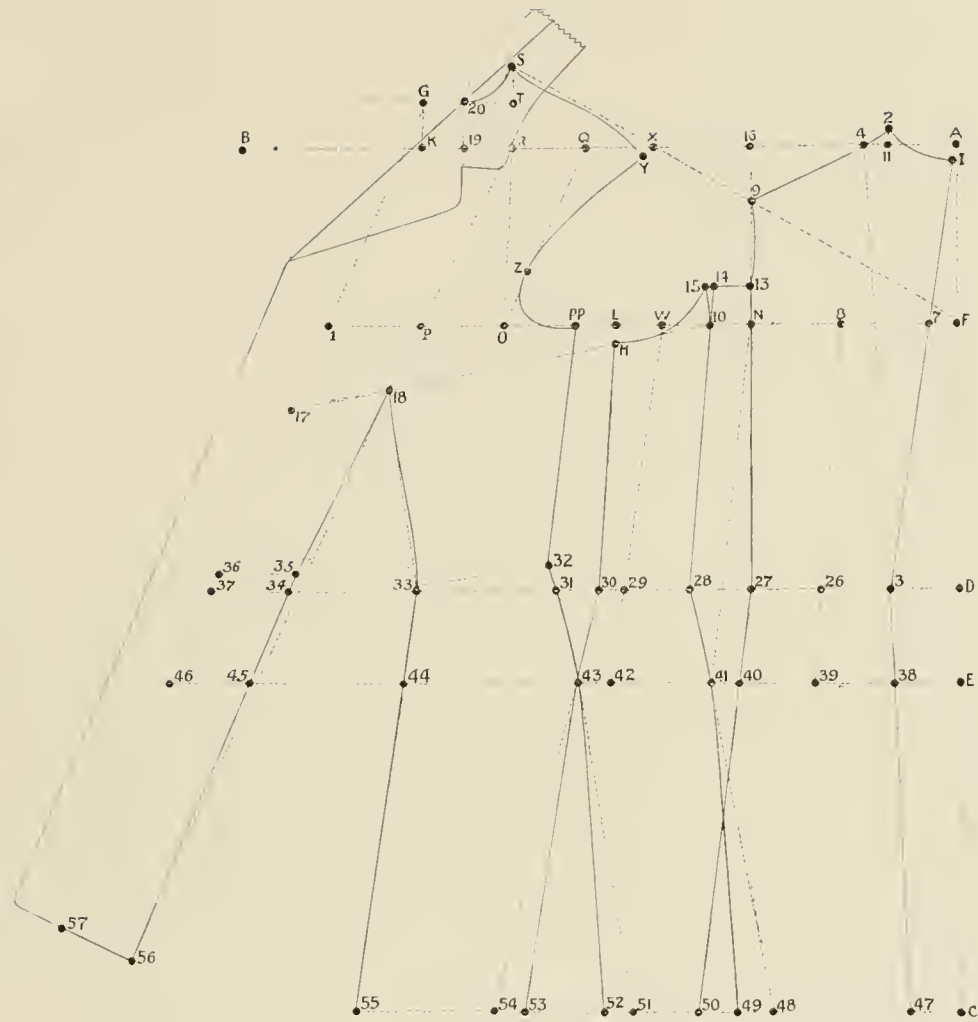 S
G 20 T
2
B K 19 R Q X 16 4 11 A
Y I
9
Z 15 14 13
1 P O PP L W 10 N 8 7 F
H
17 18
36 35 32
37 34 33 31 30 29 28 27 26 3 D
46 45 44 43 42 41 40 39 38 E
57
56
55 54 53 52 51 50 49 48 47 C